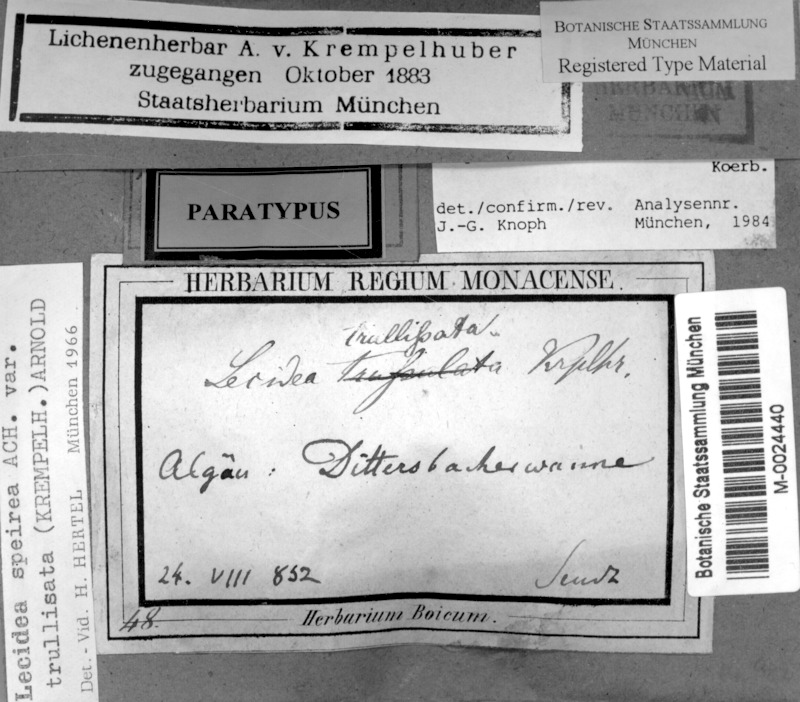 Lichenenherbar A. v. Krempelhuber
zugegangen Oktober 1883
Staatsherbarium München
BOTANISCHE STAATSSAMMLUNG
MÜNCHEN
Registered Type Material
HERBARIUM
MÜNCHEN
PARATYPUS
Koerb.
det./confirm./rev. Analysennr.
J.-G. Knoph München, 1984
HERBARIUM REGIUM MONACENSE.
trullissata.
Lecidea Krplhr.
Algäu: Dittersbacherwanne
24. VIII 852
Sendt
48.
Herbarium Boicum.
Lecidea speirea ACH. var.
trullisata (KREMPELH.)ARNOLD
Det.- Vid. H. HERTEL München 1966
Botanische Staatssammlung München
M-0024440